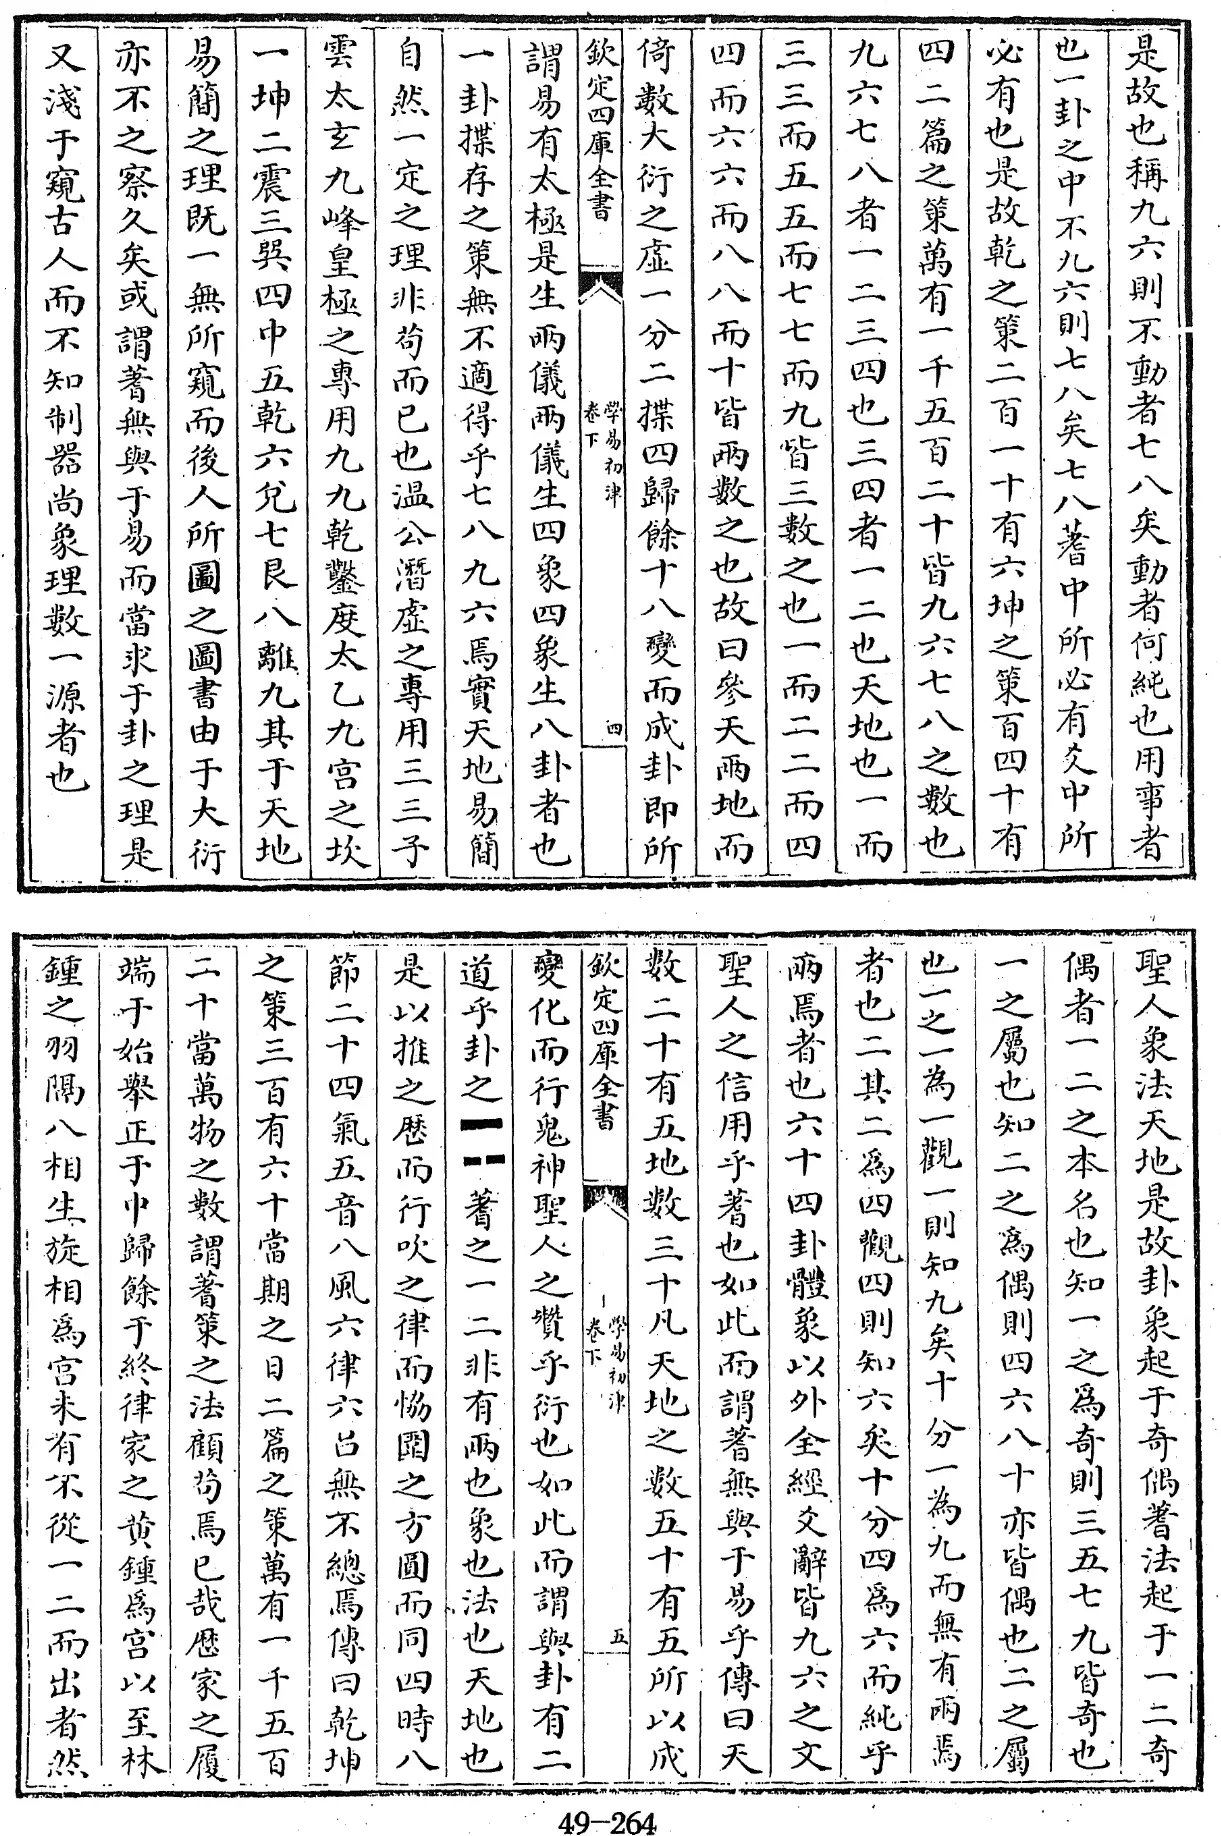 是故也稱九六則不動者七八矣動者何純也用事者
也一卦之中不九六則七八矣七八蓍中所必有爻中所
必有也是故乾之策二百一十有六坤之策百四十有
四二篇之策萬有一千五百二十皆九六七八之數也
九六七八者一二三四也三四者一二也天地也一而
三三而五五而七七而九皆三數之也一而二二而四
四而六六而八八而十皆兩數之也故曰參天兩地而
倚數大衍之虛一分二揲四歸餘十八變而成卦即所
欽定四庫全書
學易初津
卷下
四
謂易有太極是生兩儀兩儀生四象四象生八卦者也
一卦揲存之策無不適得乎七八九六焉實天地易簡
自然一定之理非苟而已也温公潛虛之專用三三子
雲太玄九峰皇極之專用九九乾鑿度太乙九宮之坎
一坤二震三巽四中五乾六兌七艮八離九其于天地
易簡之理既一無所窺而後人所圖之圖書由于大衍
亦不之察久矣或謂蓍無與于易而當求于卦之理是
又淺于窺古人而不知制器尚象理數一源者也
聖人象法天地是故卦象起于奇偶蓍法起于一二奇
偶者一二之本名也知一之為奇則三五七九皆奇也
一之屬也知二之為偶則四六八十亦皆偶也二之屬
也一之一為一觀一則知九矣十分一為九而無有兩焉
者也二其二為四觀四則知六矣十分四為六而純乎
兩焉者也六十四卦體象以外全經爻辭皆九六之文
聖人之信用乎蓍也如此而謂蓍無與于易乎傳曰天
數二十有五地數三十凡天地之數五十有五所以成
欽定四庫全書
學易初津
卷下
五
變化而行鬼神聖人之贊乎衍也如此而謂與卦有二
道乎卦之⚊⚋蓍之一二非有兩也象也法也天地也
是以推之歴而行吹之律而恊圍之方圓而同四時八
節二十四氣五音八風六律六呂無不總焉傳曰乾坤
之策三百有六十當期之日二篇之策萬有一千五百
二十當萬物之數謂蓍策之法顧茍焉已哉歴家之履
端于始舉正于中歸餘于終律家之黄鍾為宮以至林
鍾之羽隔八相生旋相為宮未有不從一二而出者然
49-264